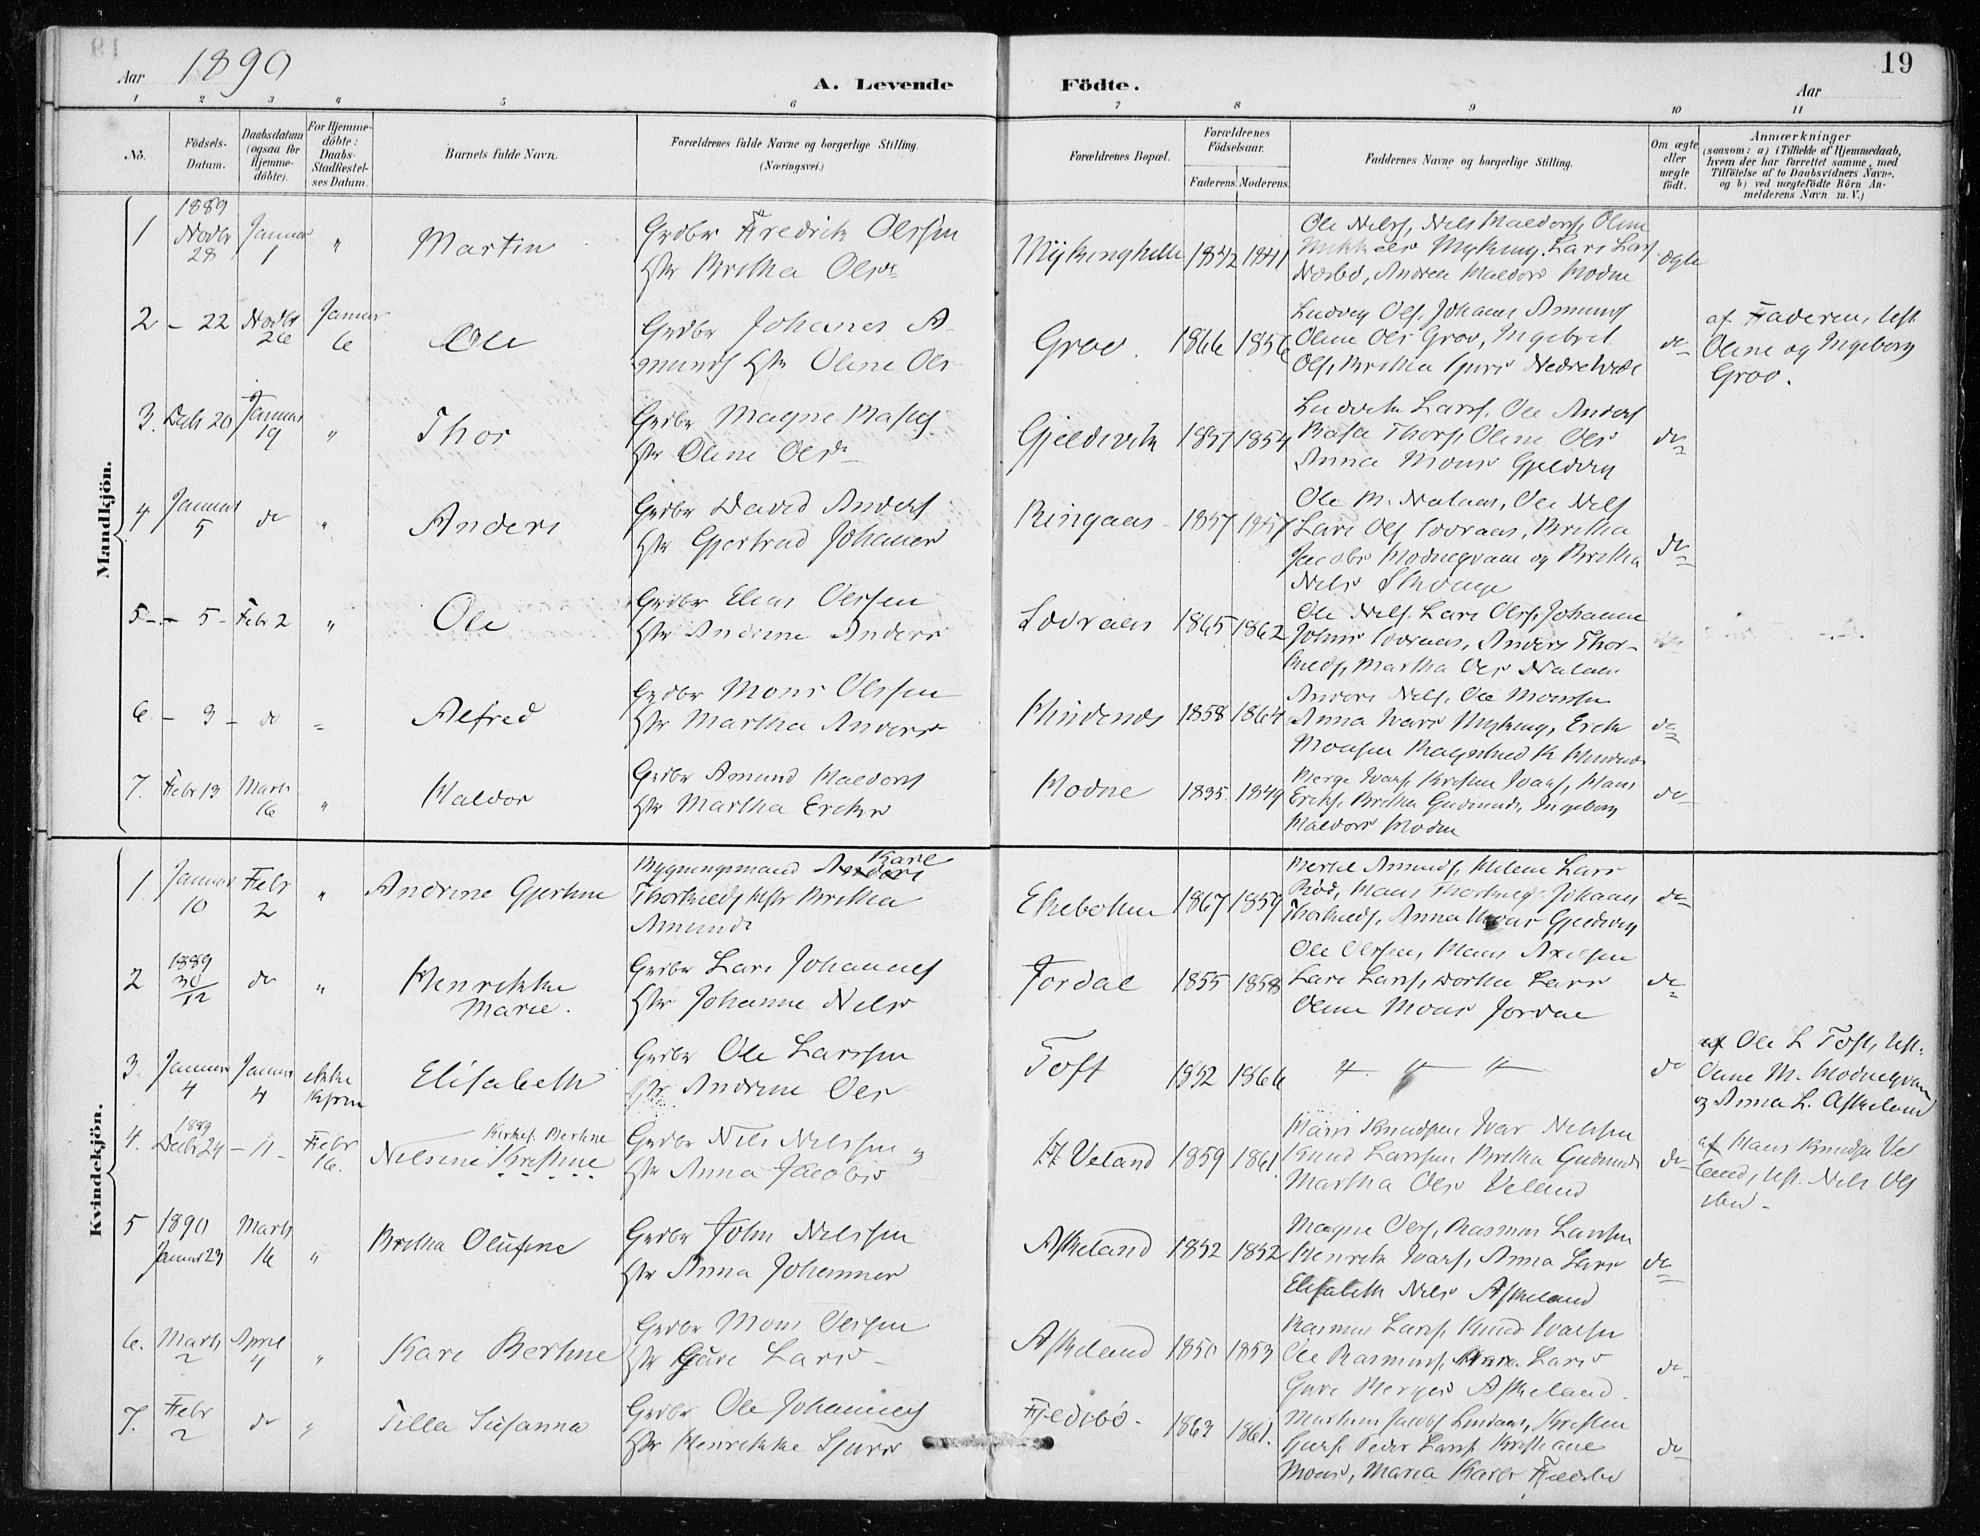 19
Aar 1890
A. Levende Födte.
Aar
1 2 3 4 5 6 7 8 9 10 11
No.
Födsels-
Datum.
Daabsdatum
(ogsaa for
Hjemme-
döbte).
For Hjemme-
döbte:
Daabs-
Stadfæstel-
ses Datum.
Barnets fulde Navn.
Forældrenes fulde Navne og borgerlige Stilling.
(Næringsvei.)
Forældrenes Bopæl.
Forældrenes
Födselsaar.
Faderens. Moderens.
Faddernes Navne og borgerlige Stilling.
Om ægte
eller
uægte
födt.
Anmærkninger
(saasom: a) i Tilfælde af Hjemmedaab,
hvem der har forrettet samme, med
Tilföielse af to Daabsvidners Navne,
og b) ved uægtefödte Börn An-
melderens Navn m. V.)
Mandkjön.
1 1889 Novbr 28 Januar 1 " Martin
Grdbr Fredrik Olssen
Hst Britha Olsdr
Mykinghelle 1842 1841
Ole Nels, Nels Haldors, Oline
Mykking, Lars Lars
Andrea Haldors Hodne
ægte
2 - 22 Novbr 26 Januar 6 Ole
Grdbr Johanes A-
munds Hst Oline Ols
Grov. 1866 1856
Ludvig Ols, Johans Amunds
Oline Ols Grov, Ingebret
Ols, Britha
do
af Faderen, test
Oline og Ingeborg
Grov.
3. Decbr 20 Januar 19 " Thor
Grdbr Magne
Hst Oline Olsdr
Gjeldsvik 1857 1854
Ludvik Lars, Ole Anders
Thors, Oline Ols
Anna Mons Gjeldsvig
do
4 Januar 5 do " Anders
Grdbr David Anders
Hst Gjertrud Johannes
Ringaas 1857 1857
Ole M. Ole Nels
Lars Ols Britha
Jacobs og Britha
Nels
do
5 - 5 - Febr 2 " Ole
Grdbr Elias Olssen
Hst Andrine Anders
1865 1862
Ole Nels. Lars Ols, Johanne
Johns Anders Thor-
Martha Ols
6 - 3 - do " Alfred
Grdbr Mons Olssen
Hst Martha Anders
Hindenes 1858 1864
Anders Nels, Ole Monsen
Anna Ivars Myking, Erik
Monsen
do
7. Febr 13 Marts 16 " Haldor
Grdbr Amund Haldors
Hst Martha Eriks
Hodne 1835 1849
Børge Ivars, Kristen Ivars, Hans
Eriks, Britha Gudmunds, Ingeborg
Haldors Hodne
do
Kvindekjön.
1 Januar 10 Febr 2 " Andrine Gjertine
Bygningsmand Anders Kare
Thorkields Hst Britha
Amunds
Ekeboten 1867 1859
Bertel Amunds, Helene Lars
Hans Thorkields Johans
Thorkields, Anna Gjeldsvig
do
2 1889 30/12 do " Henrikke
Marie.
Grdbr Lars Johannes
Hst Johanne Nels
Fordal 1855 1858
Ole Olssen, Hans Axelsen
Lars Lars, Dorthea Lars
Oline Mons Fordal
do
3. Januar 4 Januar 4 ikke Elisabeth
Grdbr Ole Larssen
Hst Andrine Ols
Toft 1832 1866
" " "
do
af Ole L Toft, test.
Oline M.
og Anna L. Askeland
4. 1889 Decbr 24 - 11 - Febr 16. Nelsine Kristine
Bertine
Grdbr Nils Nilssen
Hst Anna Jacobs
Veland 1859 1861
Hans Knudsen, Ivar Nilssen
Knud Larssen, Britha Gudmunds
Martha Ols Veland
do
af Hans Knudsen Ve
land, test. Nils Ols
ibid -
5 1890 Januar 23 Marts 16 " Britha Olufine
Grdbr John Nilssen
Hst Anna Johannes
Askeland 1852 1852
Magne Ols, Rasmus Larssen
Henrik Ivars, Anna Lars
Elisabeth Nils Askeland
do
6. Marts 2 April 4 " Kari Bertine
Grdbr Mons Olssen
Hst Guri Lars
Askeland 1850 1853
Rasmus Lars, Knud Ivarsen
Ole Rasmus, Lars
Guri Børges Askeland
do
7. Febr 2 do " Tilla Susanna
Grdbr Ole Johannes
Hst Henrikke Sjurs
Fjeldsbø 1863 1861.
Jacobs Lindaas, Kristen
Peder Lars, Kristiane
Mons, Maria Karls Fjeldsbø
do